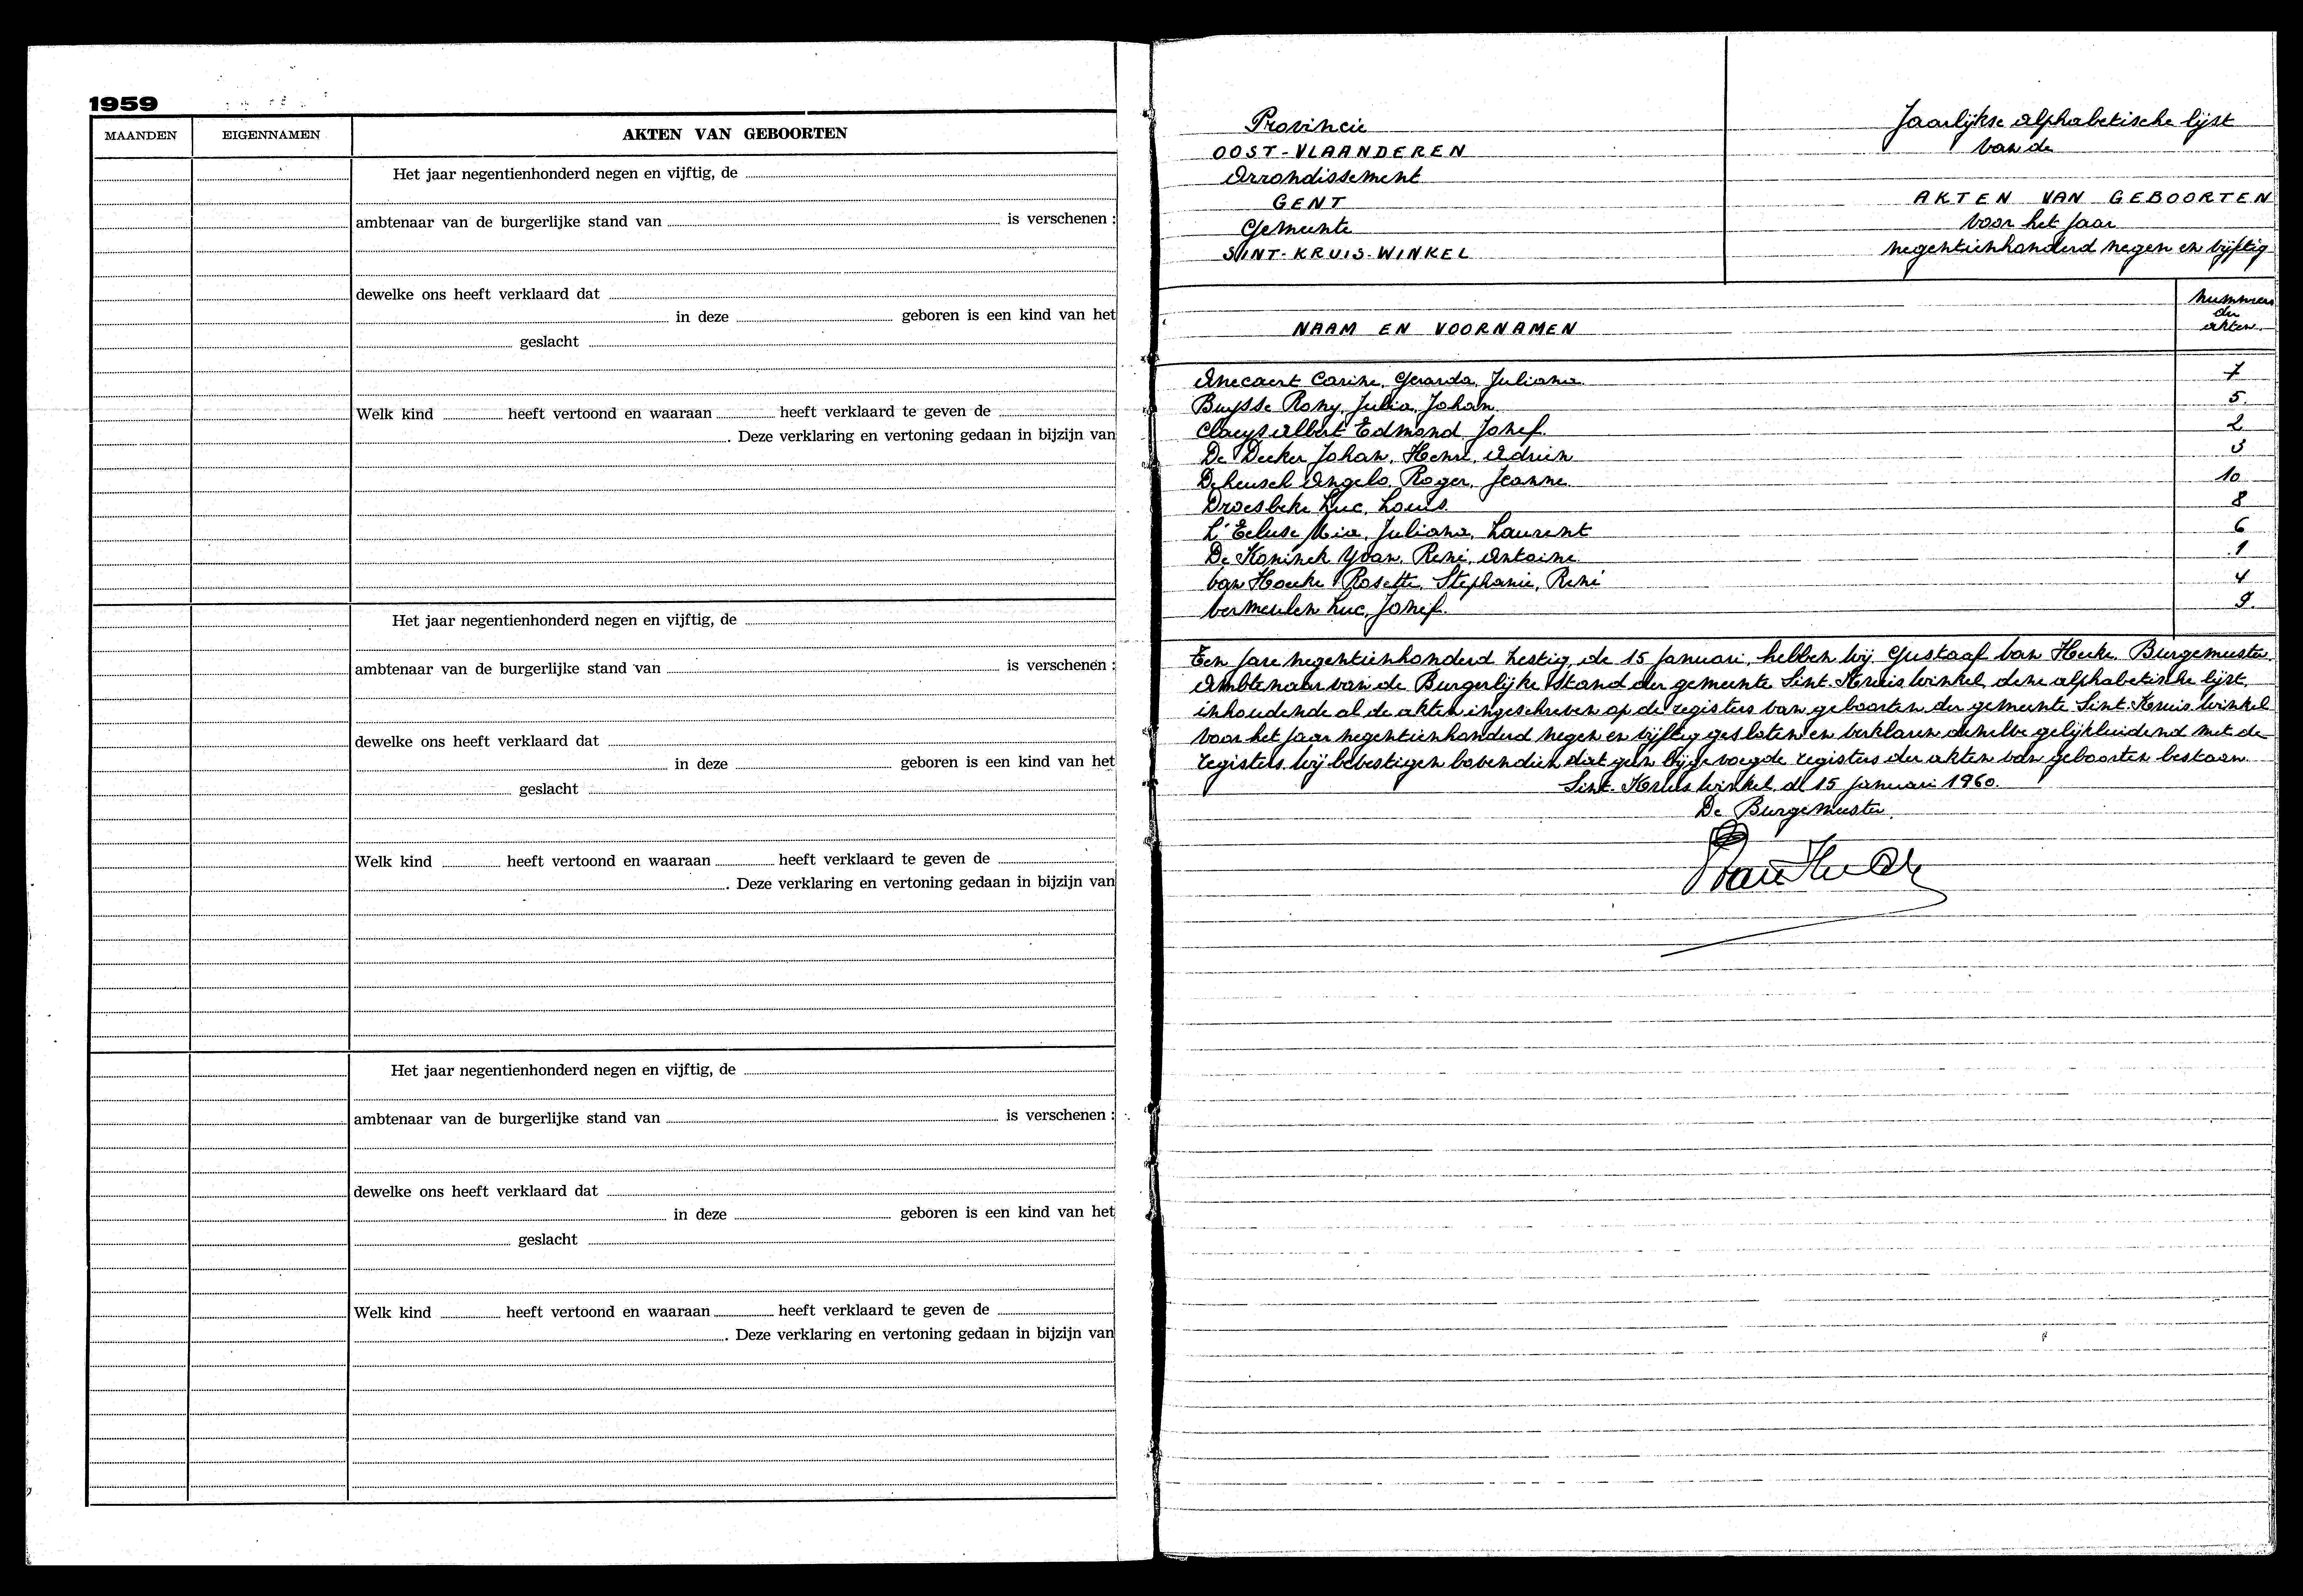 1959
MAANDEN EIGENNAMEN AKTEN VAN GEBOORTEN
Het jaar negentienhonderd negen en vijftig, de
ambtenaar van de burgerlijke stand van is verschenen :
dewelke ons heeft verklaard dat
in deze geboren is een kind van het
geslacht
Welk kind heeft vertoond en waaraan heeft verklaard te geven de
. Deze verklaring en vertoning gedaan in bijzijn van
Het jaar negentienhonderd negen en vijftig, de
ambtenaar van de burgerlijke stand van is verschenen :
dewelke ons heeft verklaard dat
in deze geboren is een kind van het
geslacht
Welk kind heeft vertoond en waaraan heeft verklaard te geven de
. Deze verklaring en vertoning gedaan in bijzijn van
Het jaar negentienhonderd negen en vijftig, de
ambtenaar van de burgerlijke stand van is verschenen :
dewelke ons heeft verklaard dat
in deze geboren is een kind van het
geslacht
Welk kind heeft vertoond en waaraan heeft verklaard te geven de
. Deze verklaring en vertoning gedaan in bijzijn van
Provincie
OOST-VLAANDEREN
Arrondissement
GENT
Gemeente
SINT-KRUIS-WINKEL
Jaarlijkse alphabetische lijst
van de
AKTEN VAN GEBOORTEN
voor het jaar
negentienhonderd negen en vijftig
NAAM EN VOORNAMEN
Nummers
der
akten.
Carine, Gerarda, Juliana 7
Buysse Rony, Julia, Johan. 5.
Claeys Albert Edmond Jozef. 2
De Decker Johan, Henri, Adrien 3
Deheusch Angelo, Roger, Jeanne. 10
Droesbeke Luc, Louis. 8
L'Ecluse Mia, Juliana, Laurent 6
De Koninck Yvan, René, Antoine 1
Van Hoecke Rosette, Stephanie, René 4
Vermeulen Luc, Jozef. 9.
Ten jare negentienhonderd zestig, de 15 januari, hebben wij Gustaaf Van Hecke, Burgemeester,
Ambtenaar van de Burgerlijke Stand der gemeente Sint-Kruis-Winkel, deze alphabetische lijst,
inhoudende al de akten ingeschreven op de registers van geboorten der gemeente Sint-Kruis-Winkel
voor het jaar negentienhonderd negen en vijftig gesloten en verklaren dezelve gelijkluidend met de
registers. Wij bevestigen bovendien dat geen bijgevoegde registers der akten van geboorten bestaan.
Sint-Kruis-Winkel, de 15 januari 1960.
De Burgemeester,